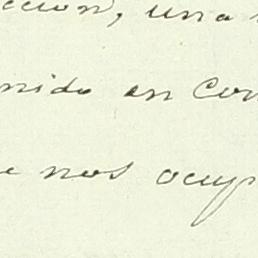 ccion, una
nido en Con
e nos ocup